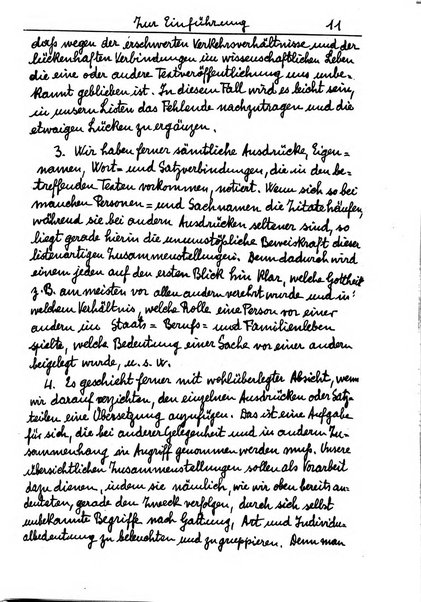 Zur Einführung 11
daß wegen der erschwerten Verkehrsverhältnisse und der
lückenhaften Verbindungen im wissenschaftlichen Leben
die eine oder andere Textveröffentlichung uns unbe-
kannt geblieben ist. In diesem Fall wird es leicht sein,
in unsern Listen das Fehlende nachzutragen und die
etwaigen Lücken zu ergänzen.
3. Wir haben ferner sämtliche Ausdrücke, Eigen=
namen, Wort= und Satzverbindungen, die in den be-
treffenden Texten vorkommen, notiert. Wenn sich so bei
manchen Personen= und Sachnamen die Zitate häufen,
während sie bei andern Ausdrücken seltener sind, so
liegt gerade hierin die unumstößliche Beweiskraft dieser
listenartigen Zusammenstellungen. Denn dadurch wird
einem jeden auf den ersten Blick hin klar, welche Gottheit
z. B. am meisten vor allen andern verehrt wurde und in
welchem Verhältnis, welche Rolle eine Person vor einer
andern im Staats= Berufs= und Familienleben
spielte, welche Bedeutung einer Sache vor einer andern
beigelegt wurde, u. s. w.
4. Es geschieht ferner mit wohlüberlegter Absicht, wenn
wir darauf verzichten, den einzelnen Ausdrücken oder Satz=
teilen eine Übersetzung anzufügen. Das ist eine Aufgabe
für sich, die bei anderer Gelegenheit und in anderm Zu=
sammenhang in Angriff genommen werden muß. Unsere
übersichtlichen Zusammenstellungen sollen als Vorarbeit
dazu dienen, indem sie nämlich, wie wir oben bereits an=
deuteten, gerade den Zweck verfolgen, durch sich selbst
unbekannte Begriffe nach Gattung, Art und Individu=
albedeutung zu beleuchten und zu gruppieren. Denn man